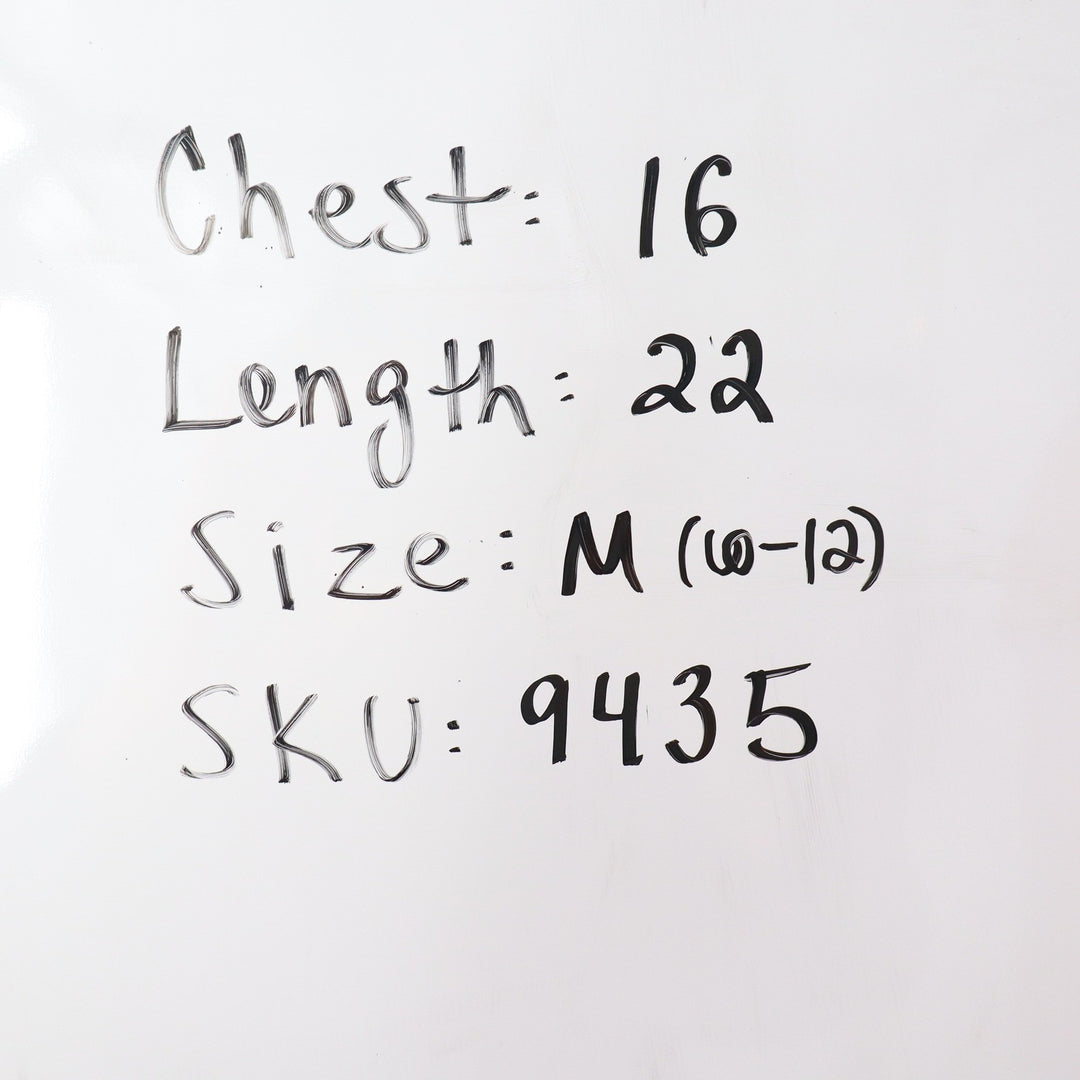 Chest: 16
Length: 22
Size: M (10-12)
SKU: 9435